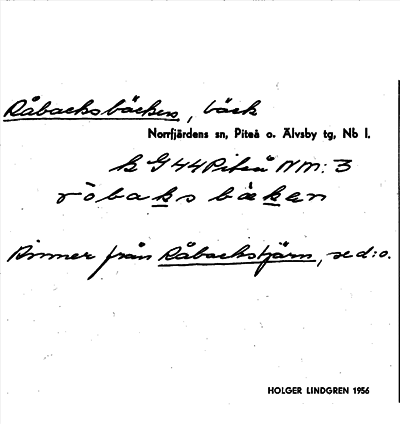 Råbacksbäcken, bäck
Norrfjärdens sn, Piteå o. Älvsby tg, Nb l.
k G44 Piteå NM: 3
röbaks bäken
Rinner från Råbackstjärn, se d:o.
HOLGER LINDGREN 1956